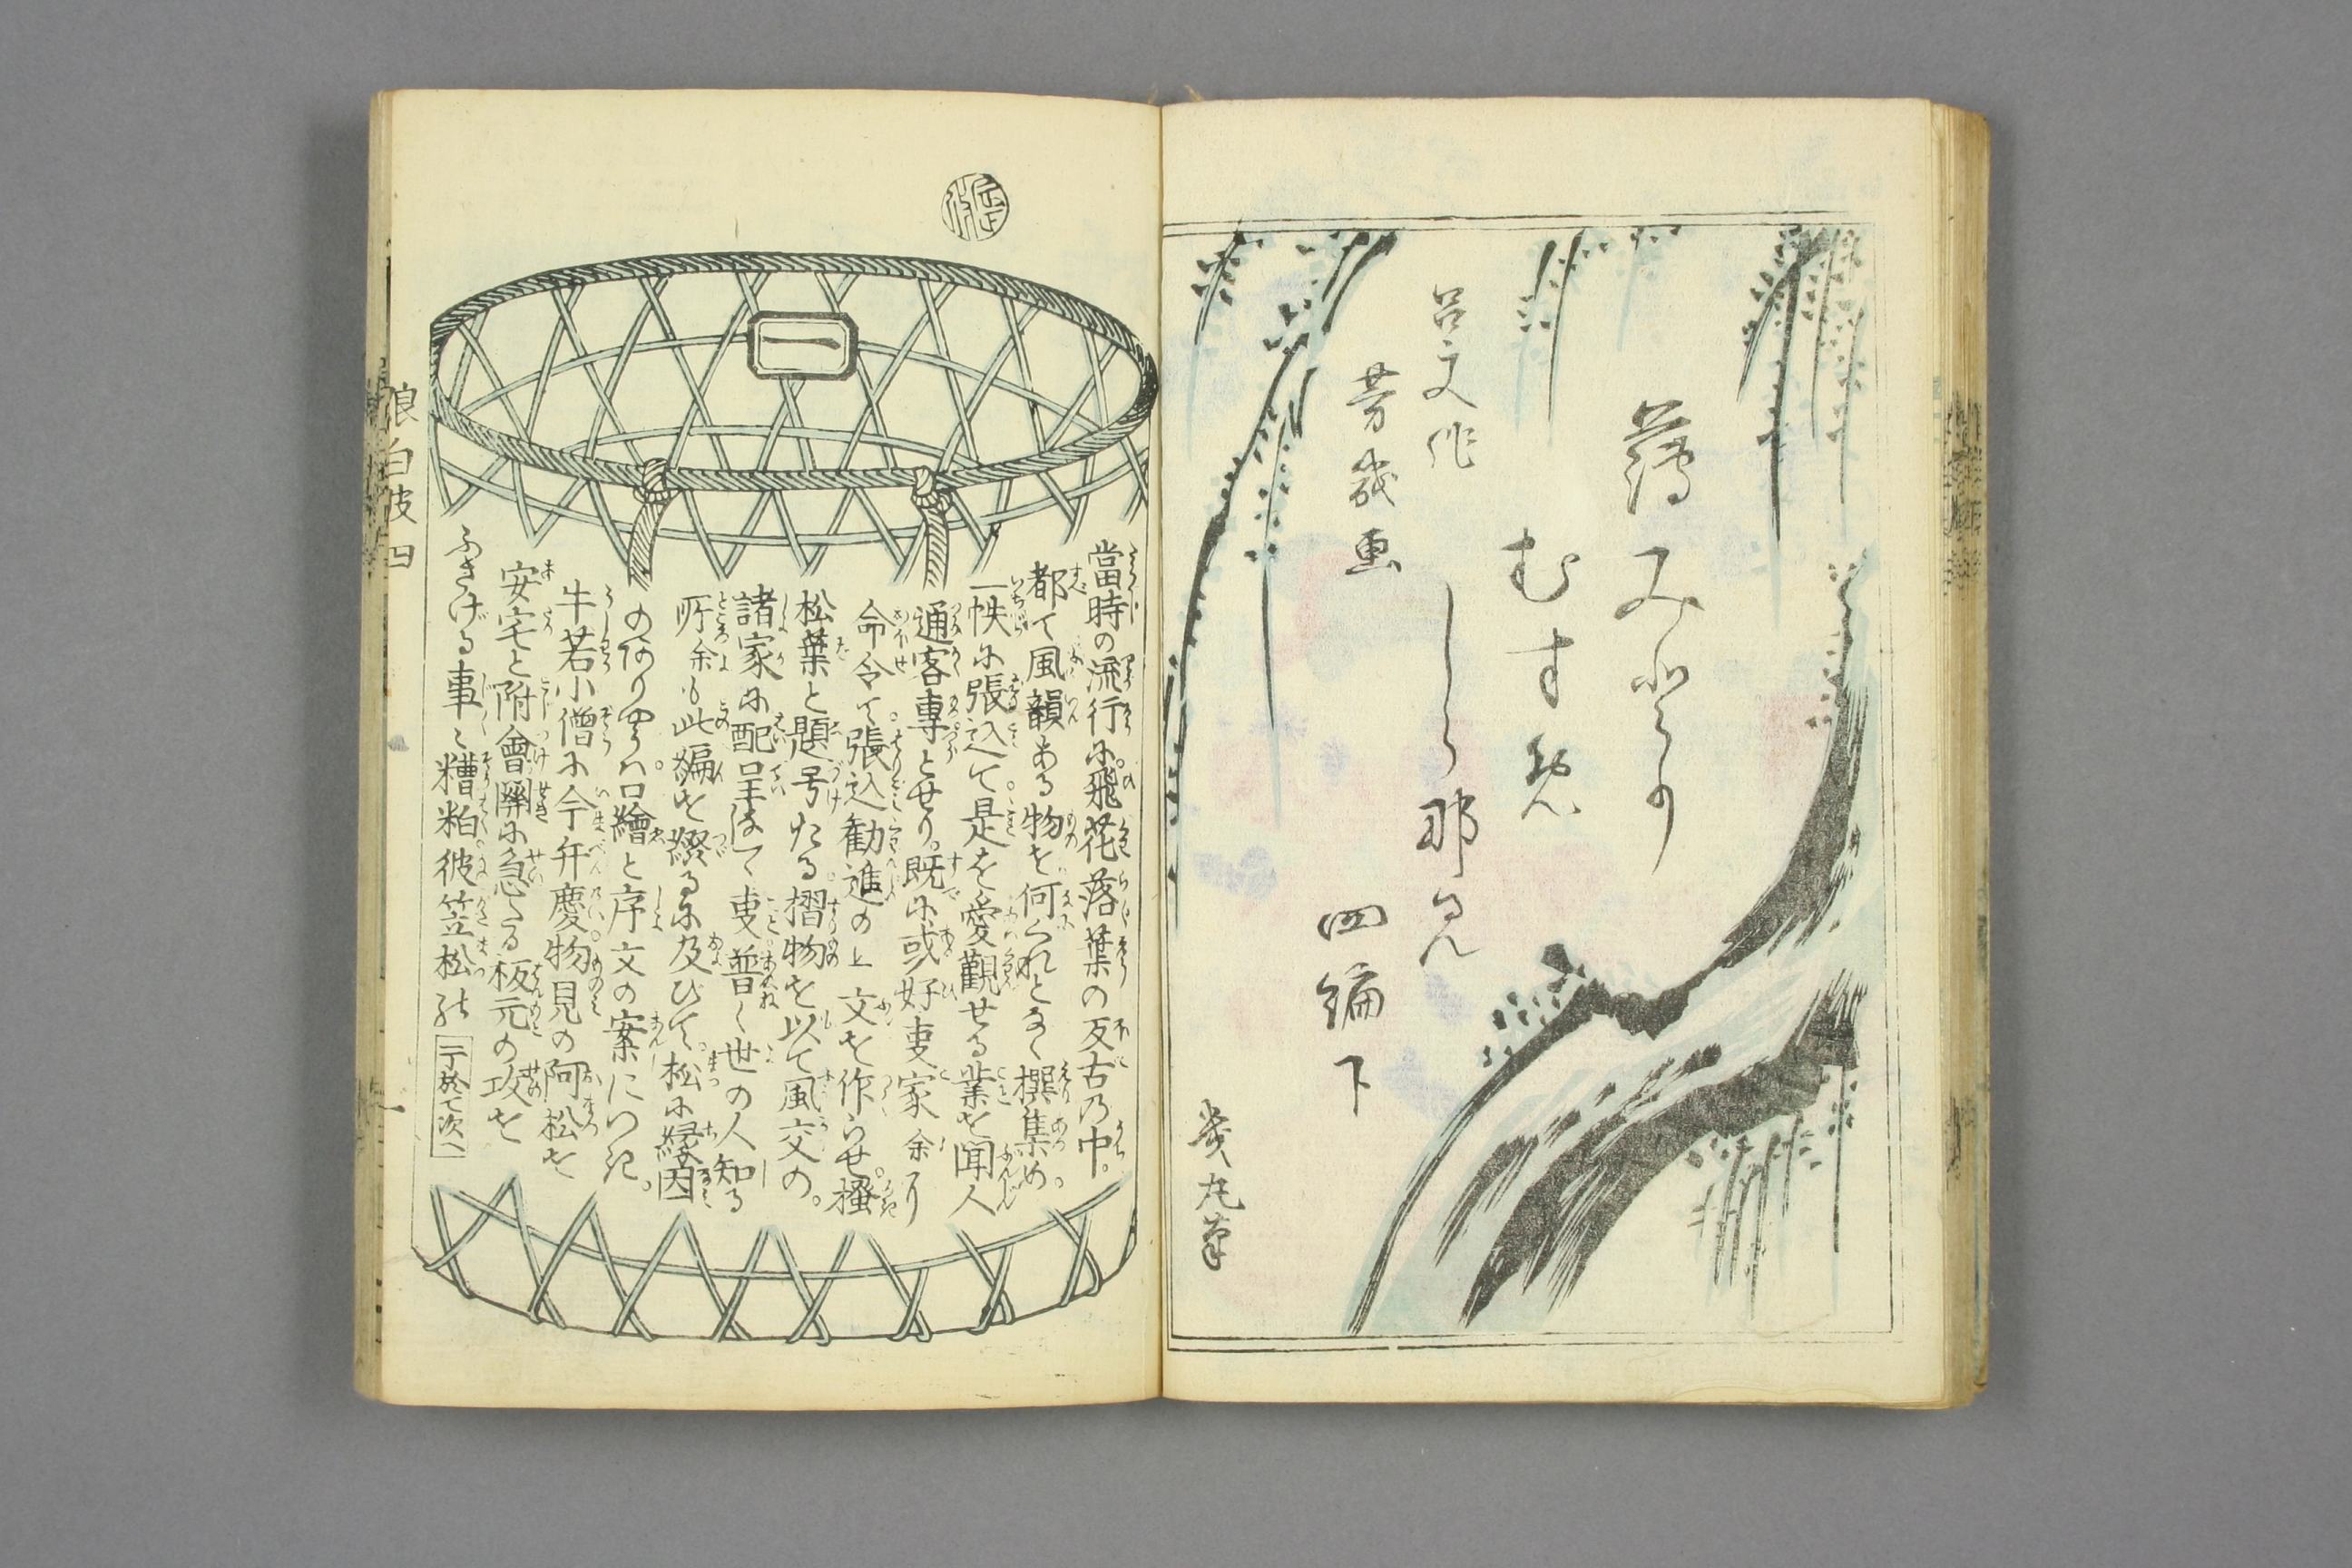 薄みとり
むすめ
しら那み
四編下
呂文作
芳幾画
幾丸筆
一
當時の流行に飛花落葉の反古乃中。
都て風韻ある物を何くれとなく撰集め。
一帙に張込て是を愛觀せる業を聞人
通客専とせり。既に或好事家余り
命令て。張込勧進の上文を作らせ。
松葉と題号たる摺物を以て風交の。
諸家に配呈して事普く世の人知る
所余も此編を綴るに及びて。松に縁因
の口繪と序文の案につき。
牛若小僧に今弁慶物見の阿松を
安宅と附會關に急たる板元の攻を
ふさげる事ミ糟粕彼笠松の
二丁於て次へ
浪白波四
一